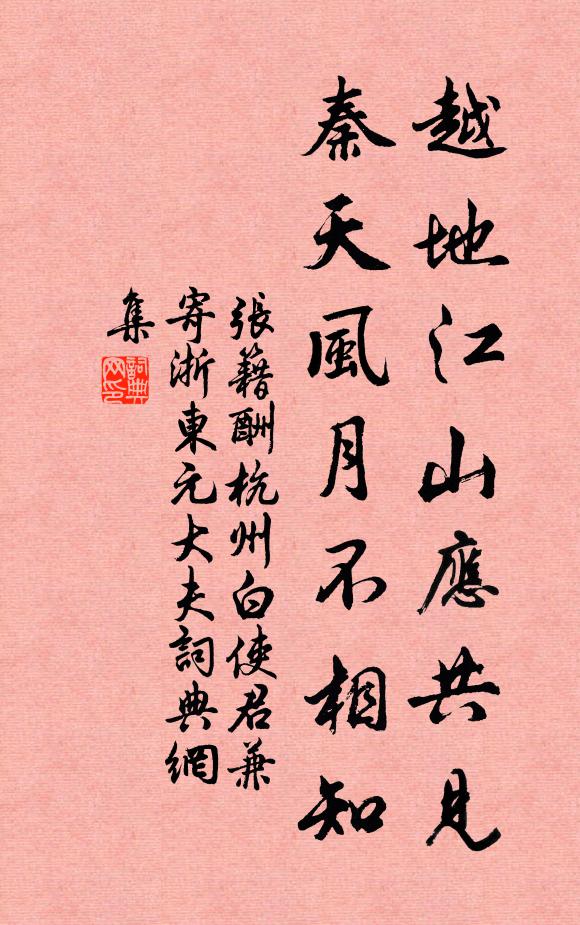 越地江山應共見
秦天風月不相知
張籍酬杭州白使君兼
寄浙東元大夫詞典網
集
詞典
网印